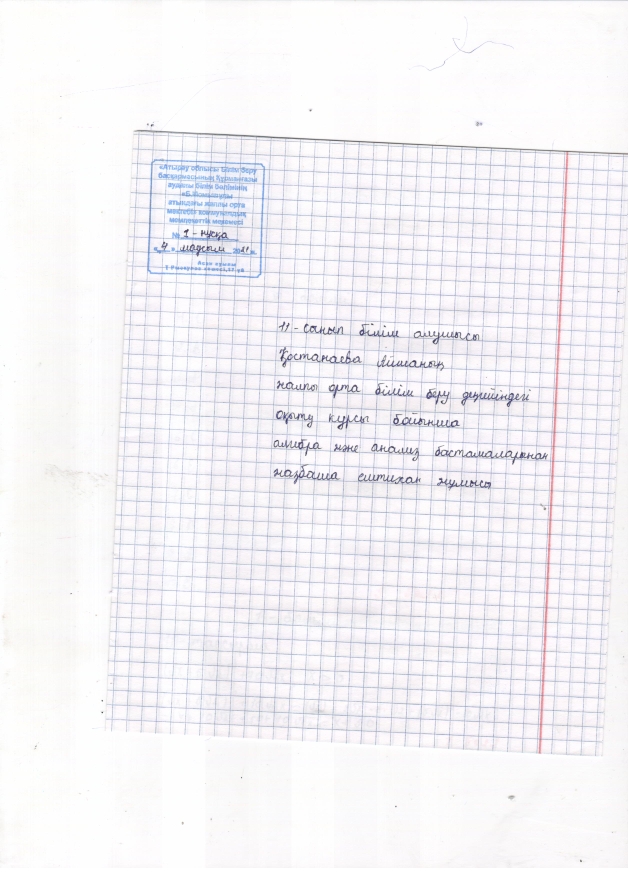 «Атырау облысы Білім беру
басқармасының Құрманғазы
ауданы білім бөлімінің
атындағы жалпы орта
мектебі» коммуналдық
мемлекеттік мекемесі
№ 1 - нұсқа
« 4 » маусым 2021 ж.
11 - сынып білім алушысы
Қостанаева Айманың
жалпы орта білім беру деңгейіндегі
оқыту курсы бойынша
алгебра және анализ бастамаларынан
жазбаша емтихан жұмысы